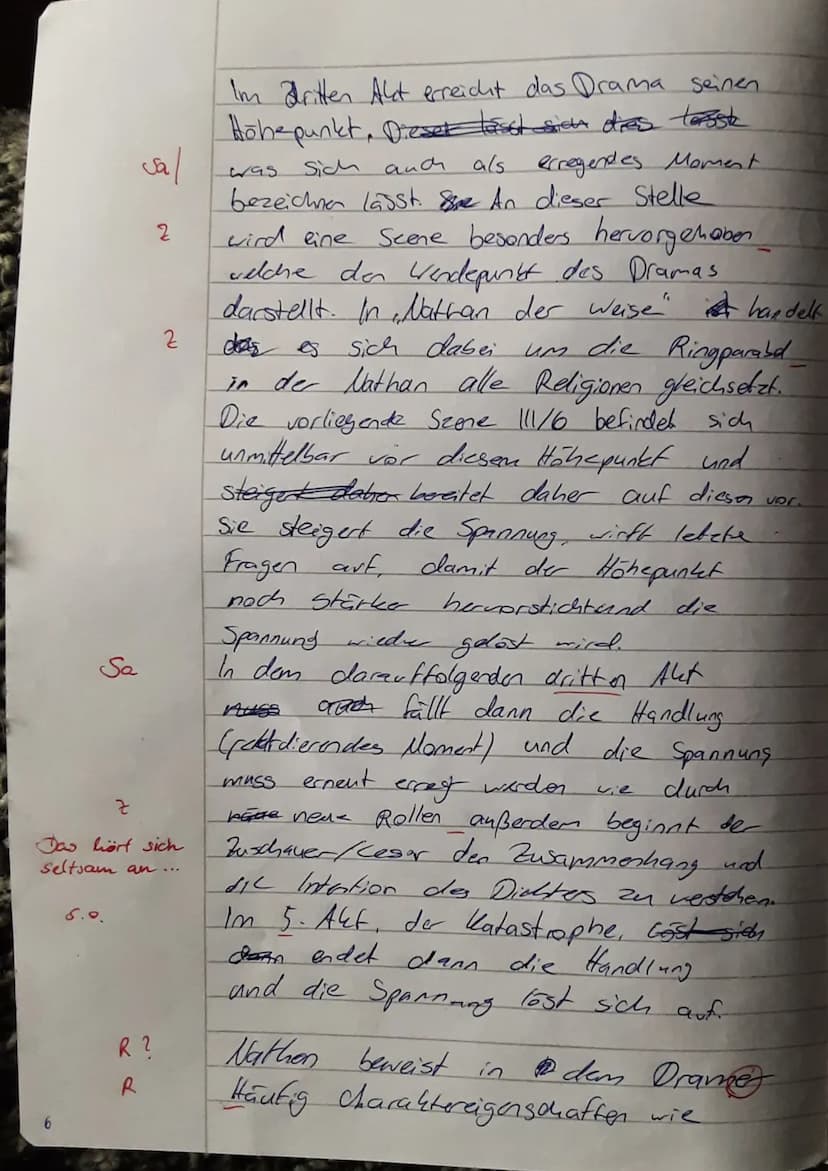 Im dritten Akt erreicht das Drama seinen
Höhepunkt,
Sa/ was sich auch als erregendes Moment
bezeichnen lässt. An dieser Stelle
Z wird eine Scene besonders hervorgehoben
welche den Wendepunkt des Dramas
darstellt. In „Nathan der Weise" handelt
Z es sich dabei um die Ringparabel
in der Nathan alle Religionen gleichsetzt.
Die vorliegende Szene III/6 befindet sich
unmittelbar vor diesem Höhepunkt und
bereitet daher auf diesen vor.
Sie steigert die Spannung, wirft letzte
Fragen auf, damit der Höhepunkt
noch stärker hervorsticht und die
Spannung wieder gelöst wird.
Sa In dem darauffolgenden dritten Akt
fällt dann die Handlung
Moment) und die Spannung
muss erneut erregt werden wie durch
Z neue Rollen außerdem beginnt der
Das hört sich Zuschauer/Leser den Zusammenhang und
seltsam an... die Intention des Dichters zu verstehen.
s.o. Im 5. Akt, der Katastrophe,
endet dann die Handlung
und die Spannung löst sich auf.
R? Nathan beweist in dem Dramer
R Häufig Charaktereigenschaften wie
6